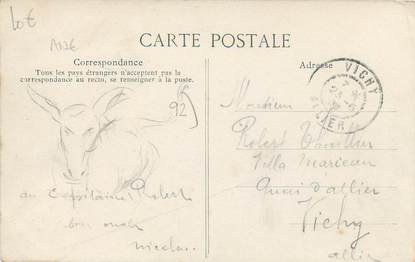 lot
1126
CARTE POSTALE
Correspondance
Tous les pays étrangers n'acceptent pas la
correspondance au recto, se renseigner à la poste.
Adresse
VICHY
ALLIER
92
Monsieur
Robert
Villa
Quai d'allier
Vichy
allier
au Capitaine Robert
son oncle
nicolas